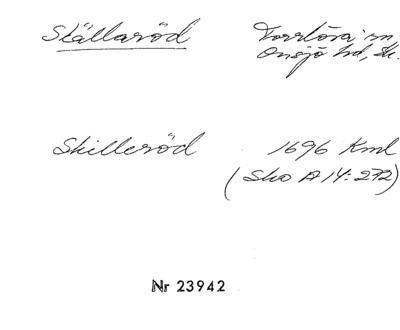 Skällaröd Torrlösa sn
Onsjö hd, Sk.
Skilleröd 1696 Kml
(Sko A 14: 272)
Nr 23942